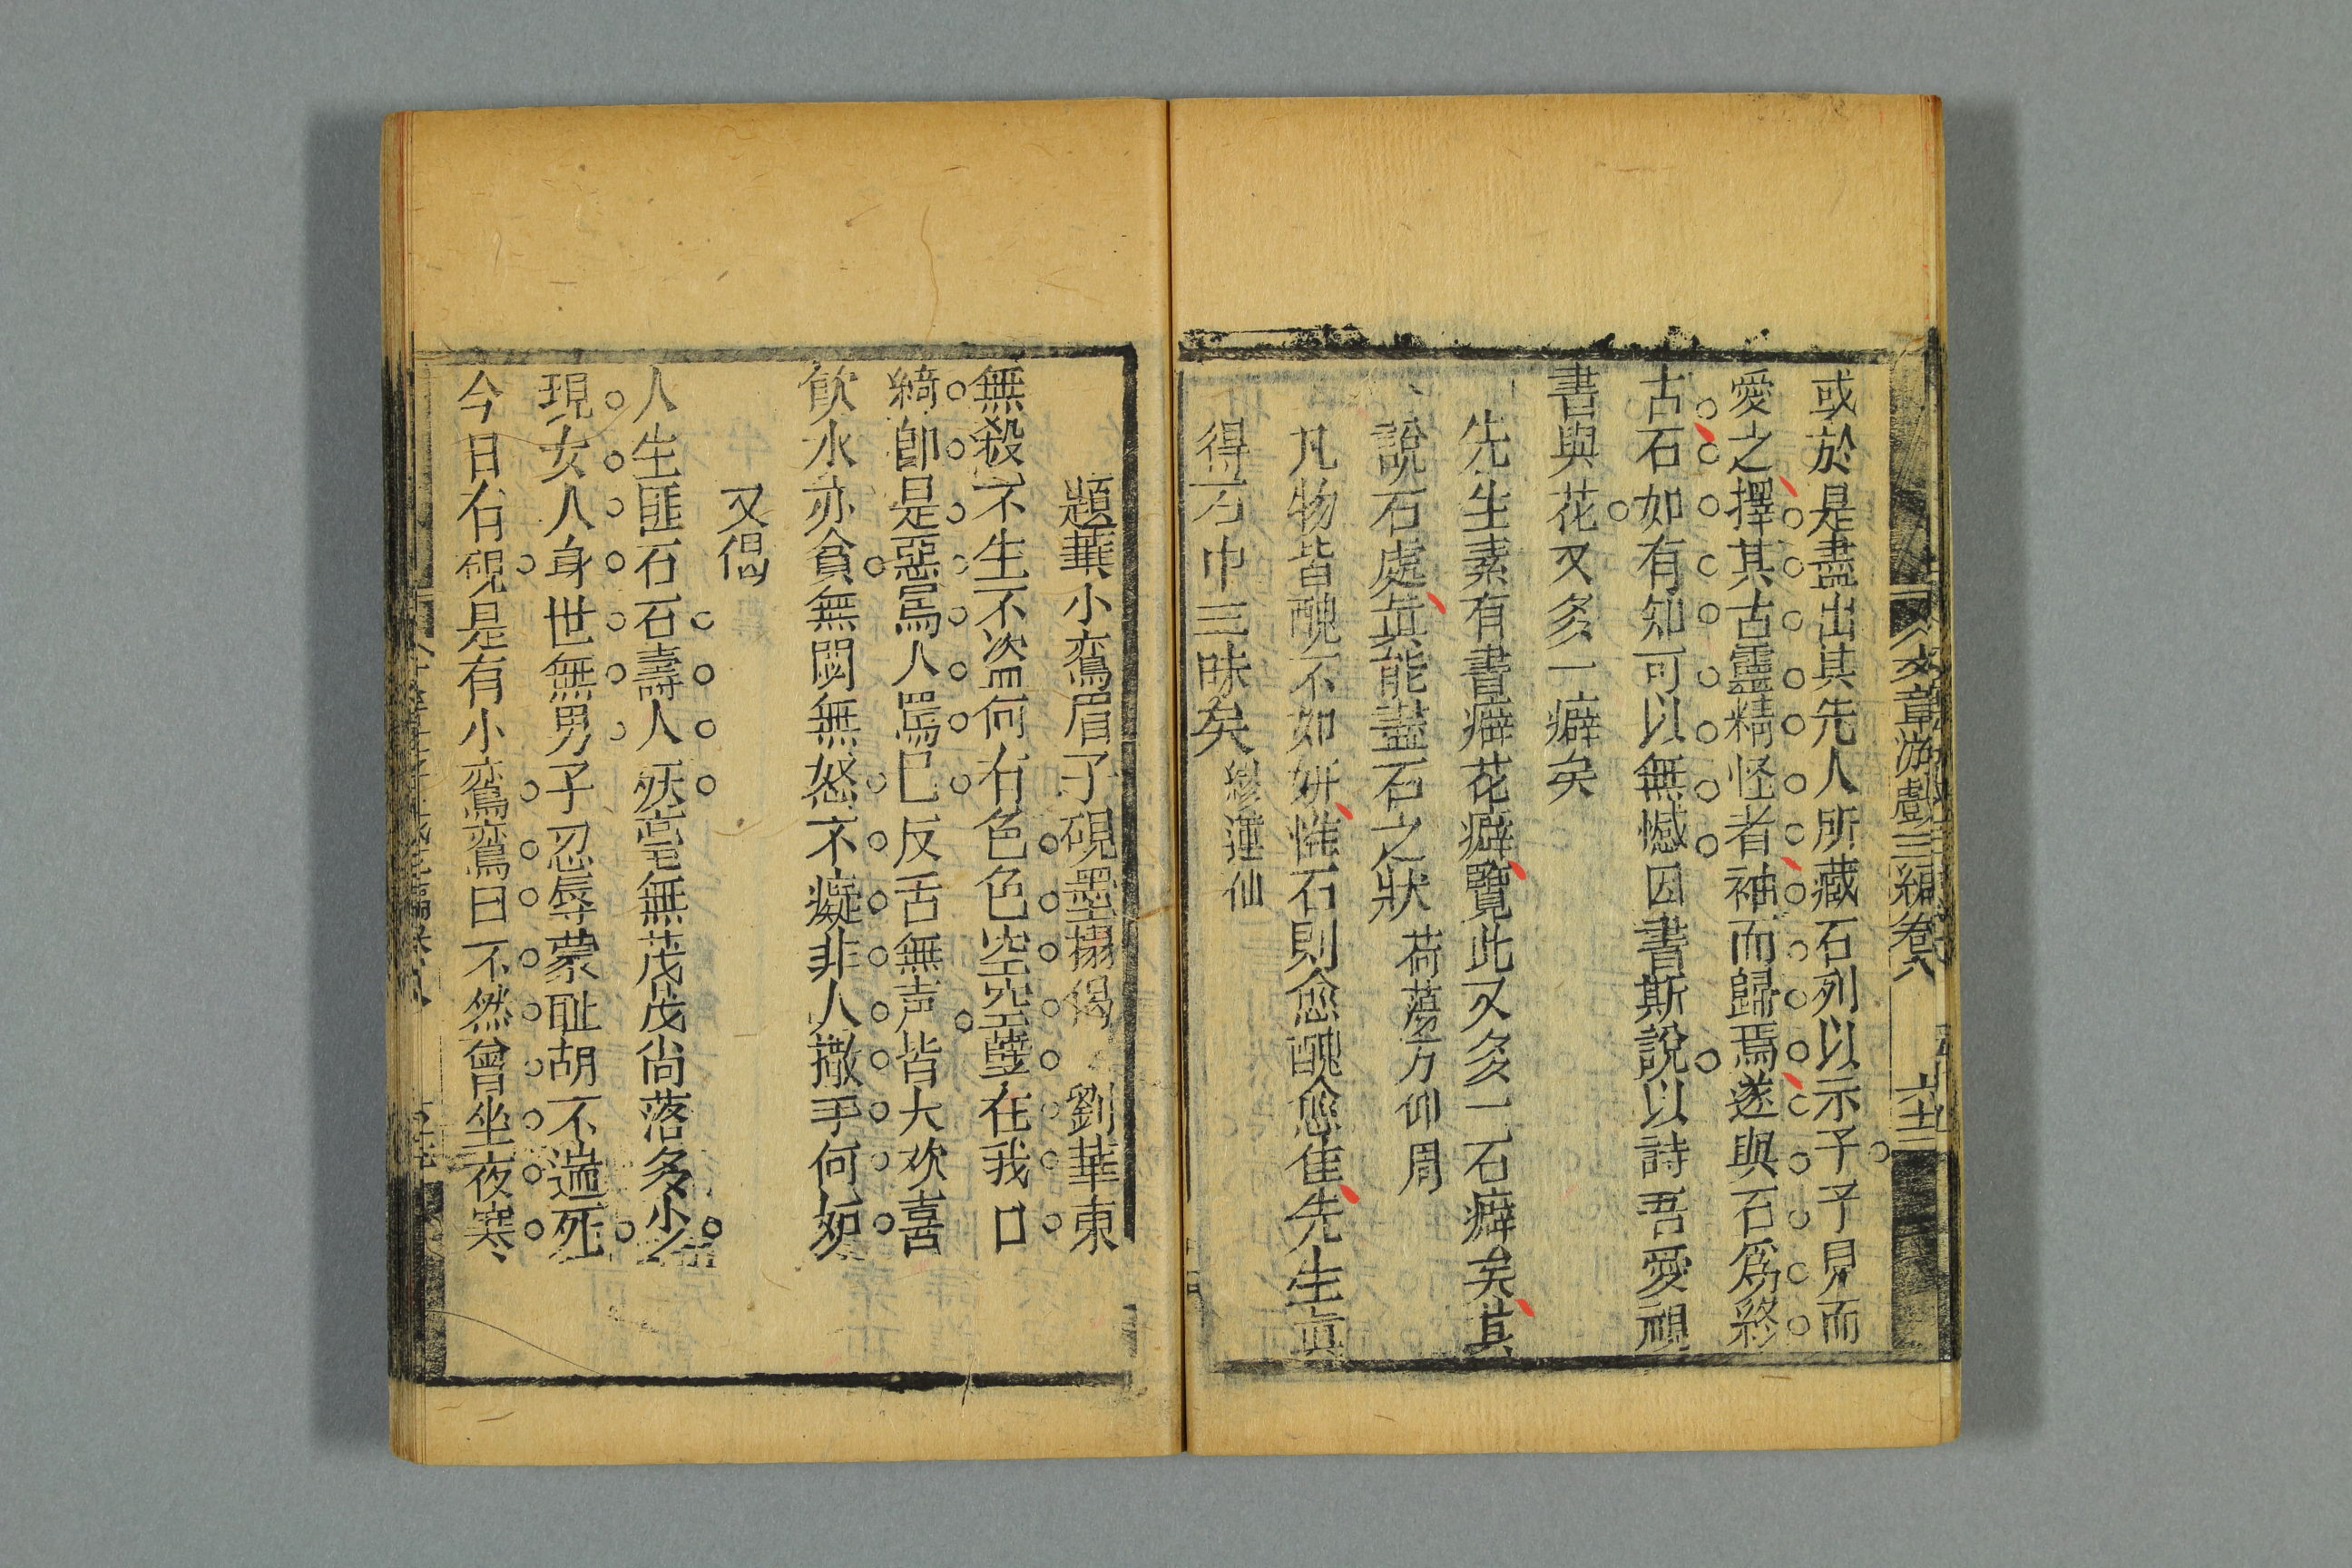 文章游戲三編卷八
六十二
或於是盡出其先人所藏石列以示予予見而
愛之擇其古靈精怪者袖而歸焉遂與石爲終
古石如有知可以無憾因書斯說以詩吾愛視
書與花又多一癖矣
先生素有書癖花癖覽此又多一石癖矣其
說石處眞能盡石之狀 荷蕩方仰周
凡物皆醜不如妍惟石則愈醜愈佳先生眞
得石中三昧矣 繆蓮仙
題葉小鸞眉子硯墨搨偈 劉華東
無殺不生不盜何有色色空空孽在我口
綺卽是惡罵人罵已反舌無声皆大欢喜
飮水亦貪無鬭無怒不癡非人撒手何処
又偈
人生匪石石壽人殀亳無茂茂尙落多少
現女人身世無男子忍辱蒙耻胡不遄死
今日有硯是有小鸞鸞曰不然曾坐夜寒